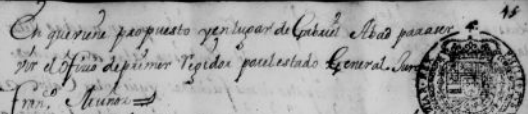 En que viene propuesto y en lugar de Gabriel Abad para ser
vir el oficio de primer Regidor por el estado General
Franco. Munoz